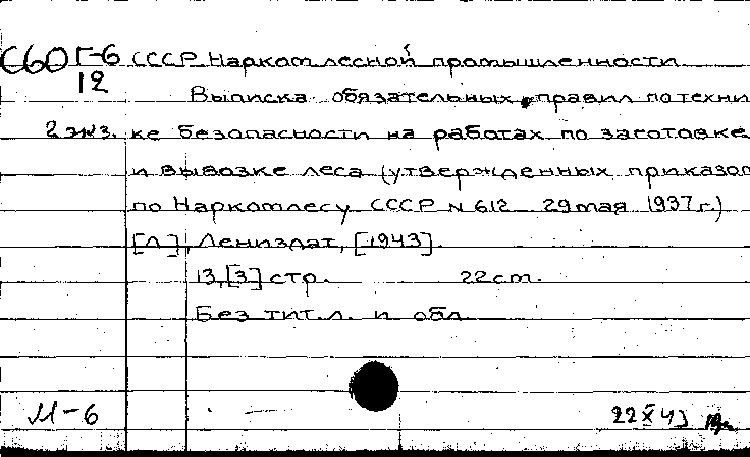 С60 Г-6 СССР Наркомлесной промышленности
12
Выписка обязательных правил по техни
2 экз. ке безопасности на работах по заготовке
и вывозке леса (утвержденных приказом
по Наркомлесу СССР N 612 29 мая 1937 г.)
[Л], Лениздат, [1943].
13,[3] стр. 22 cm.
Без тит. л. и обл
М-6 22 X 43